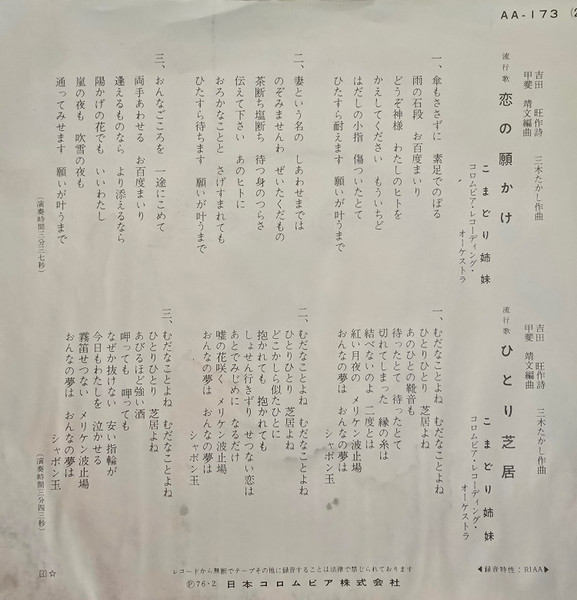 AA-173
流行歌
恋の願かけ
吉田 旺作詩
三木たかし作曲
甲斐 靖文編曲
こまどり姉妹
コロムビア・レコーディング・
オーケストラ
一、傘もささずに 素足でのぼる
雨の石段 お百度まいり
どうぞ神様 わたしのヒトを
かえしてください もういちど
はだしの小指 傷ついたとて
ひたすら耐えます 願いが叶うまで
二、妻という名の しあわせまでは
のぞみませんわ ぜいたくだもの
茶断ち塩断ち 待つ身のつらさ
伝えて下さい あのヒトに
おろかなことと さげすまれても
ひたすら待ちます 願いが叶うまで
三、おんなごころを 一途にこめて
両手あわせる お百度まいり
逢えるものなら より添えるなら
陽かげの花でも いいわたし
嵐の夜も 吹雪の夜も
通ってみせます 願いが叶うまで
(演奏時間三分三七秒)
流行歌
ひとり芝居
吉田 旺作詩
三木たかし作曲
甲斐 靖文編曲
こまどり姉妹
コロムビア・レコーディング・
オーケストラ
一、むだなことよね むだなことよね
ひとりひとり 芝居よね
あのひとの靴音も
待ったとて 待ったとて
切れてしまった 縁の糸は
結べないのよ 二度とは
紅い月夜の メリケン波止場
おんなの夢は おんなの夢は
シャボン玉
二、むだなことよね むだなことよね
ひとりひとり 芝居よね
どこかしら似たひとに
抱かれても 抱かれても
しょせん行きずり せつない恋は
あとでみじめに なるだけ
嘘の花咲く メリケン波止場
おんなの夢は おんなの夢は
シャボン玉
三、むだなことよね むだなことよね
ひとりひとり 芝居よね
あびるほど強い酒
呷っても 呷っても
なぜか抜けない 安い指輪が
今日もわたしを 泣かせる
霧笛せつない メリケン波止場
おんなの夢は おんなの夢は
シャボン玉
(演奏時間三分四三秒)
レコードから無断でテープその他に録音することは法律で禁じられております
Ⓟ76・2 日本コロムビア株式会社
◀録音特性:RIAA▶